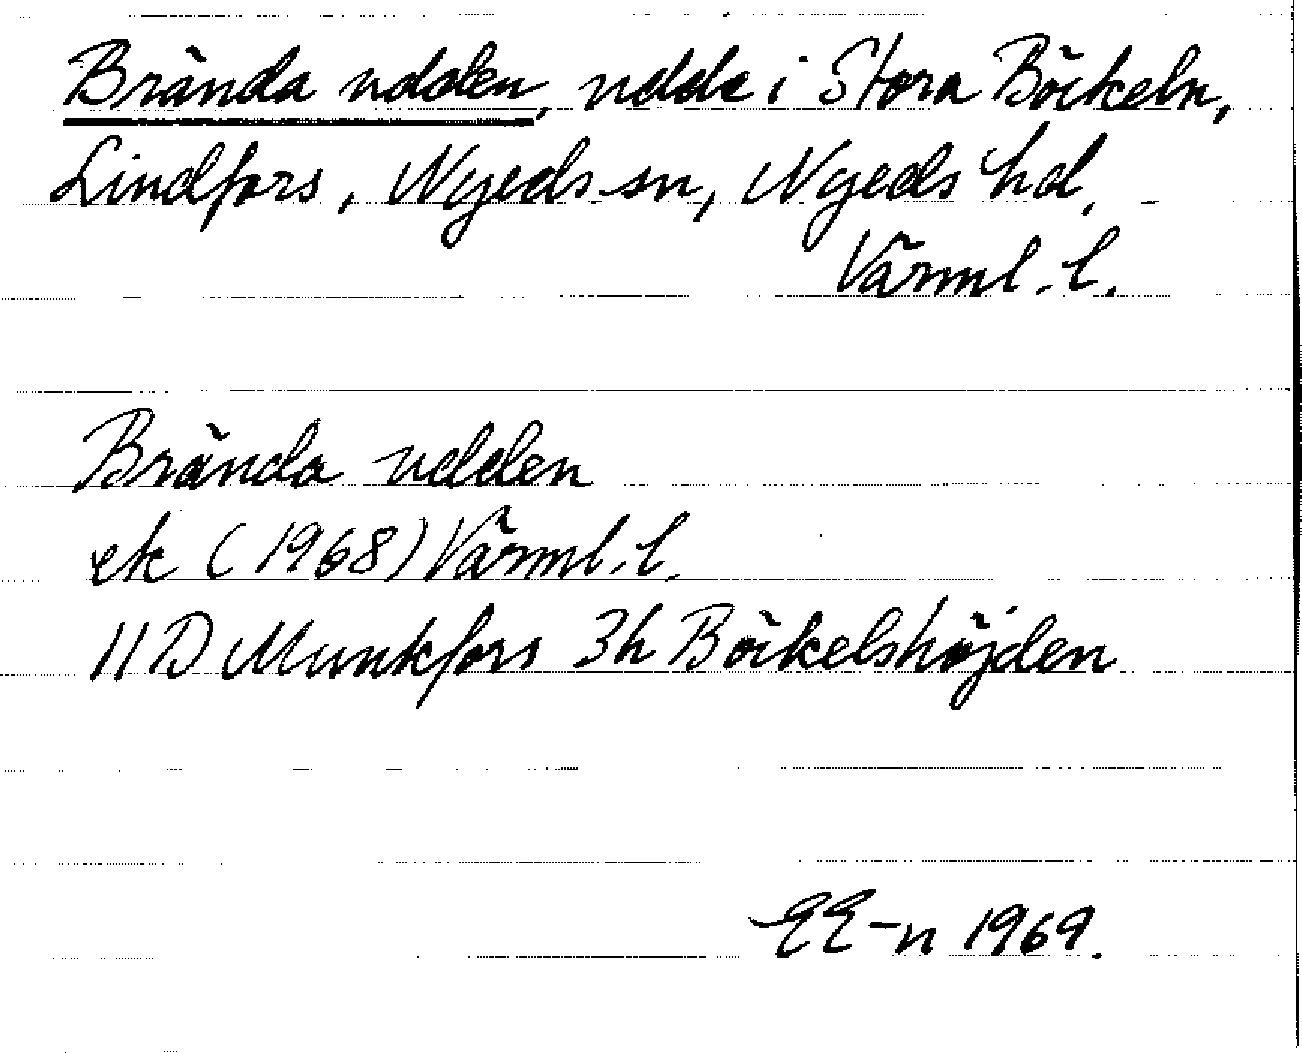 Brända udden, udde i Stora Böckeln,
Lindfors, Nyeds sn, Nyeds hd,
Värml. l.
Brända udden
ek (1968) Värml. l.
11D Munkfors 3h Böckelshöjden
EE-n 1969.